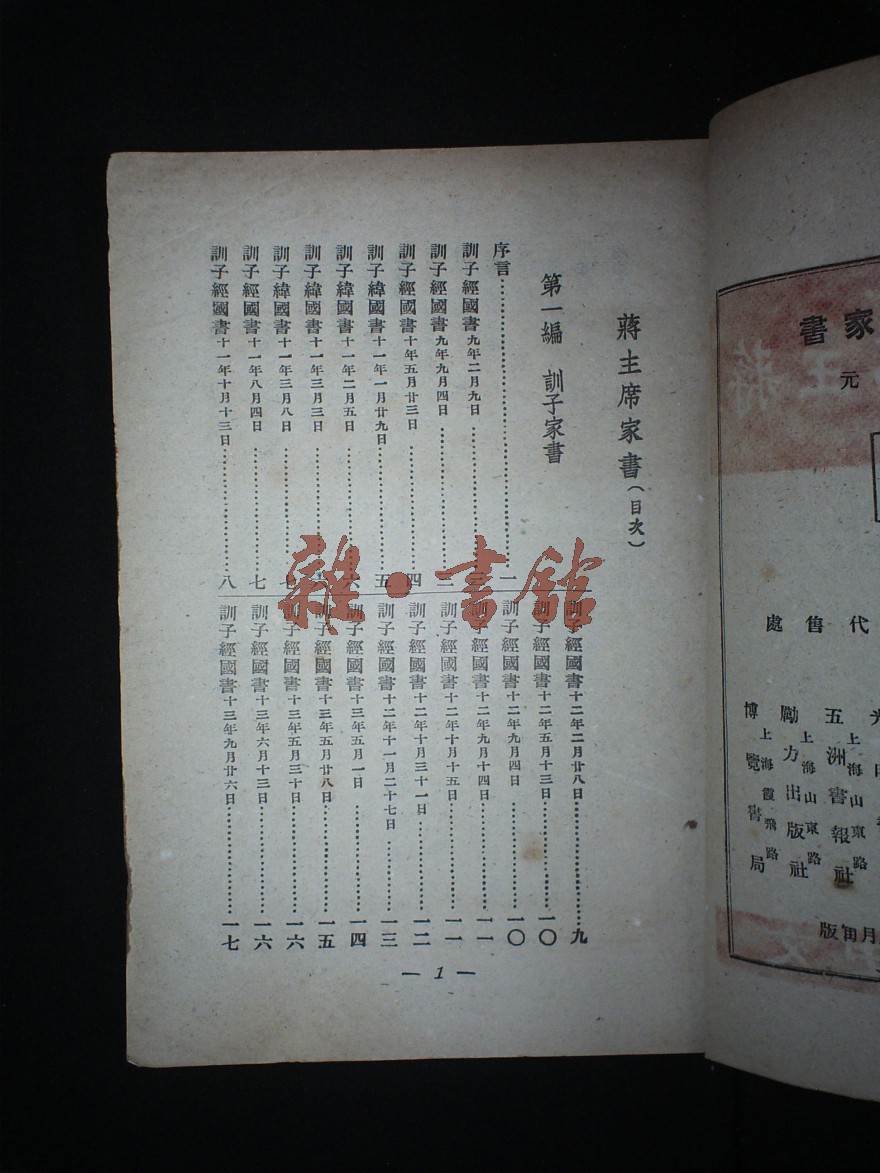 家書
元
代售處
五洲書報社 上海山東路
勵力出版社 上海山東路
博覽書局 上海霞飛路
月旬版
蔣主席家書（目次）
第一編 訓子家書
序言……一
訓子經國書九年二月九日……
訓子經國書九年九月四日……
訓子經國書十年五月廿三日……四
訓子緯國書十一年一月廿九日……五
訓子緯國書十一年二月五日……六
訓子緯國書十一年三月三日……
訓子緯國書十一年三月八日……七
訓子經國書十一年八月四日……七
訓子經國書十一年十月十三日……八
訓子經國書十二年二月廿八日……九
訓子經國書十二年五月十三日……一〇
訓子經國書十二年九月四日……一〇
訓子經國書十二年九月十四日……一一
訓子經國書十二年十月十五日……一一
訓子經國書十二年十月三十一日……一二
訓子經國書十二年十一月二十七日……一三
訓子經國書十三年五月一日……一四
訓子經國書十三年五月廿八日……一五
訓子經國書十三年五月三十日……一六
訓子經國書十三年六月十三日……一六
訓子經國書十三年九月廿六日……一七
— 1 —
雜·書館